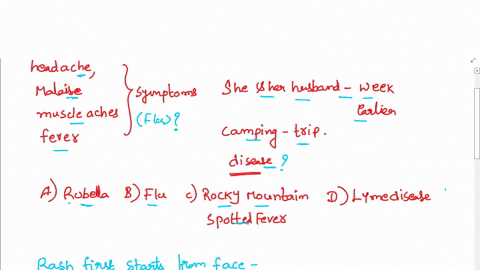 headache,
Malaise
muscle aches
fever
symptoms
(Flu)?
She & her husband - week
Earlier
camping - trip.
disease ?
A) Rubella B) Flu c) Rocky Mountain D) Lymedisease
Spotted Fever
Rash first starts from face -